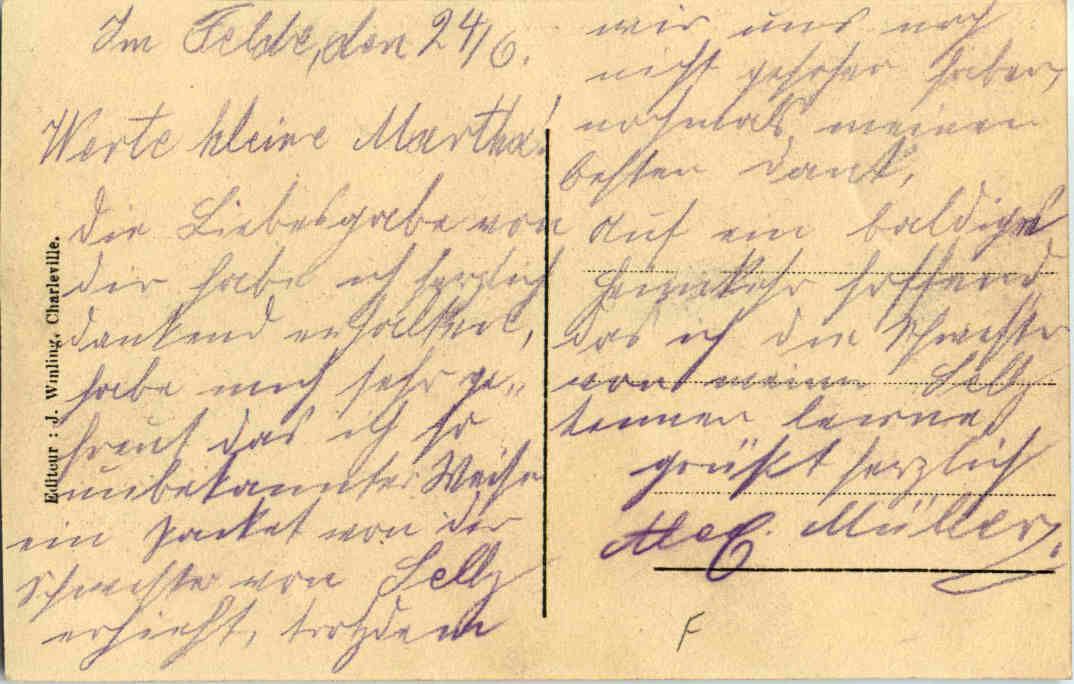 Im Felde, den 24/6.
Werte kleine Martha!
Die Liebesgabe von
dir habe ich herzlich
dankend erhalten,
habe mich sehr ge-
freut das ich so
unbekannter Weise
ein Packet von der
Schwester von Selly
erhielt, trotzdem
wir uns noch
nicht gesehen haben,
nochmals meinen
besten Dank,
Auf ein baldiges
Heimkehr hoffend
das ich die Schwester
von meinem Selly
kennen lerne
grüßt herzlich
Müller.
Editeur : J. Winling, Charleville.
F